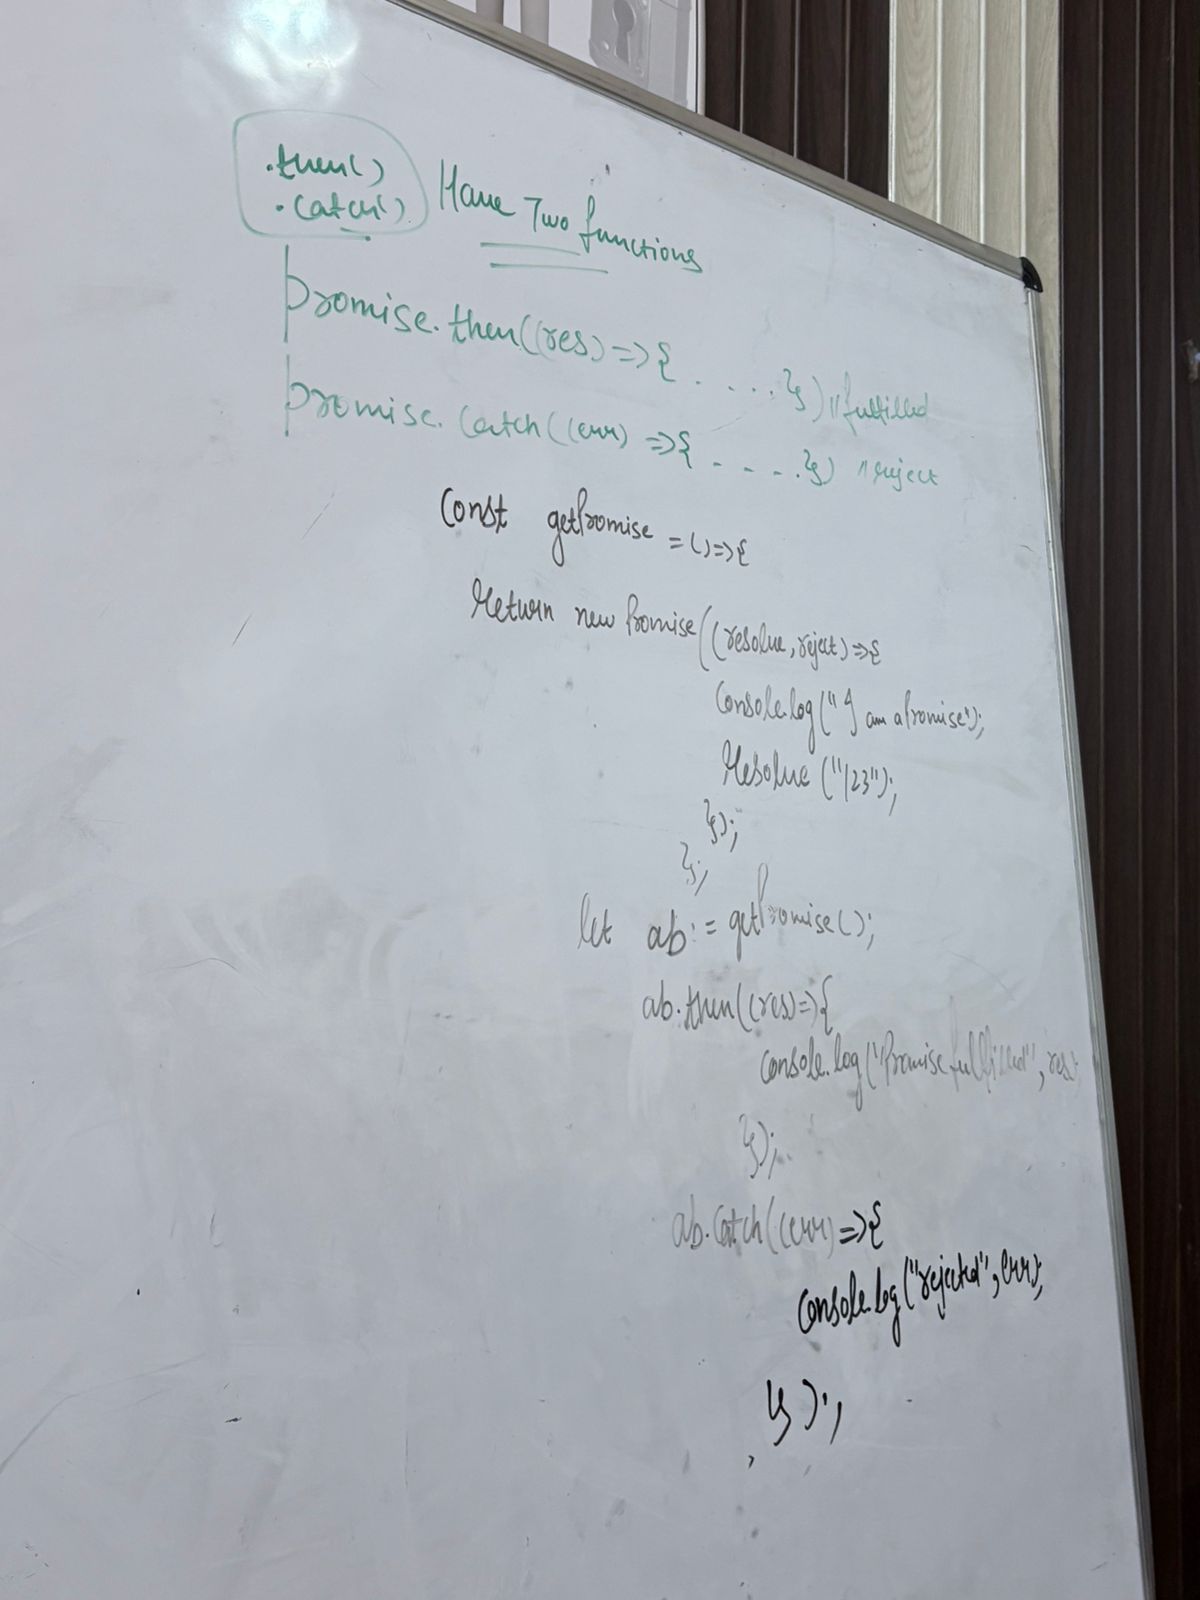 .then()
.catch() Have Two functions
promise.then((res) => { . . . . . }) // fulfilled
promise.catch((err) => { . . . . . }) // reject
Const getPromise = () => {
Return new Promise((resolve, reject) => {
Console.log("I am a Promise");
Resolve ("123");
});
};
let ab = getPromise();
ab.then((res) => {
console.log("Promise fulfilled", res
});
ab.Catch((err) => {
console.log("rejected", err);
});